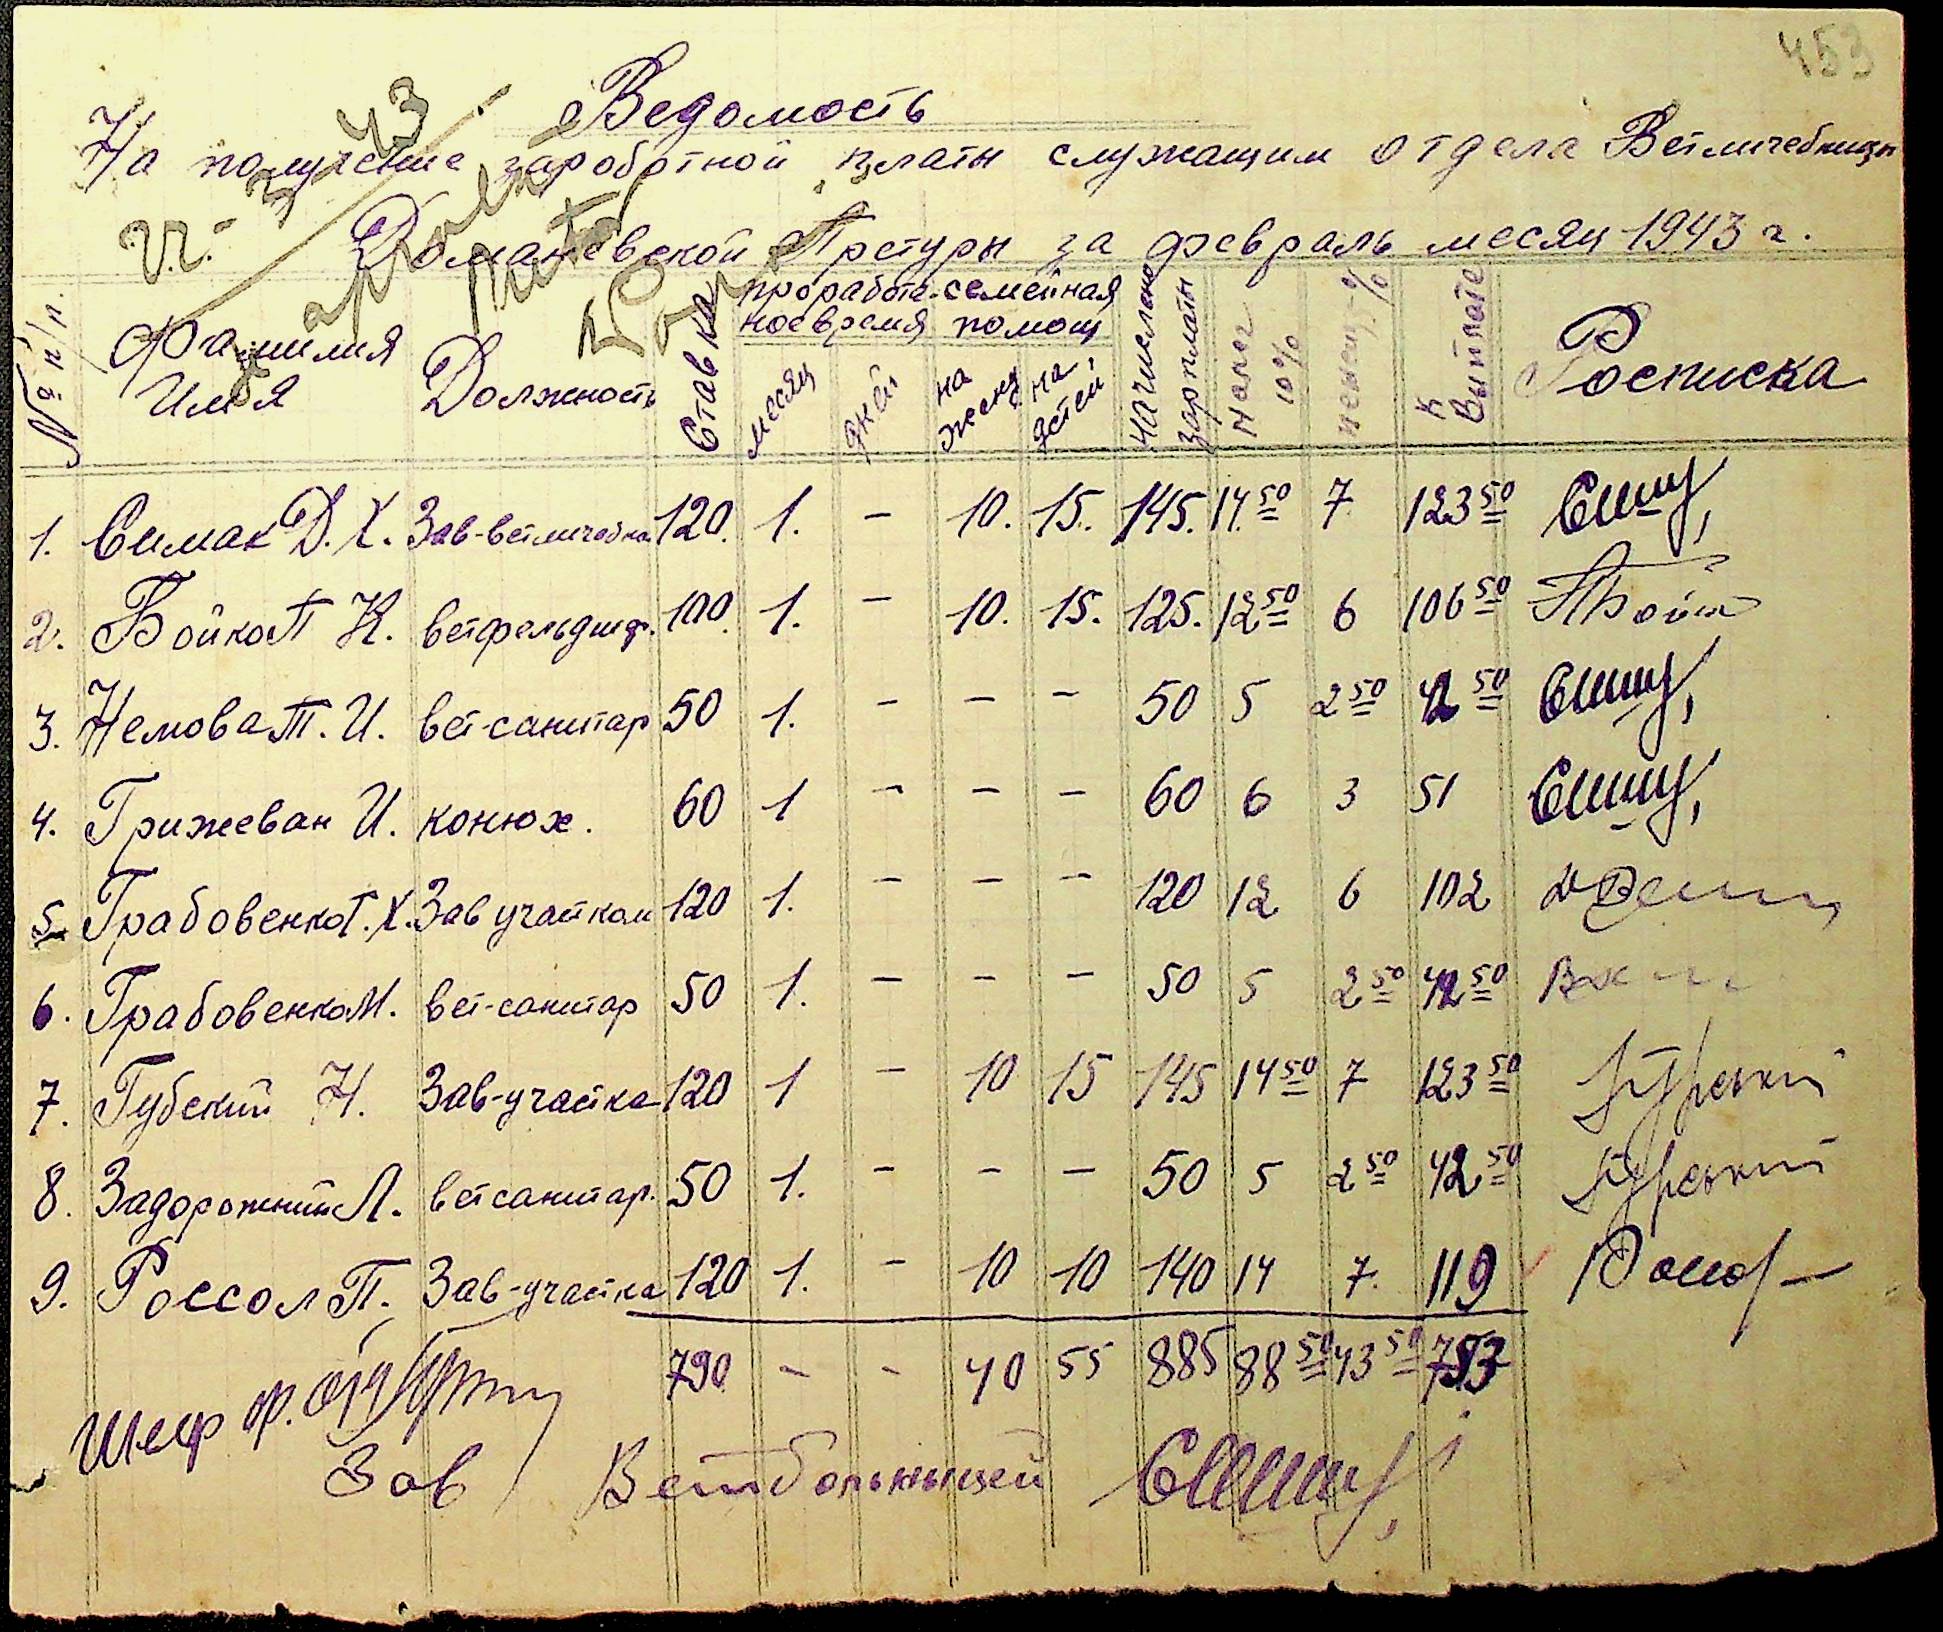 453
Ведомость
На получение зароботной платы служащим отдела Ветличебницы
Доманевской Претуры за февраль месяц 1943 г.
№ п/п. Фамилия Имя Должность Ставка проработа-ное время месяц дней семейная помощ на жену на детей Начислено зарплаты Налог 10% пенсион. % К выплате Росписка
1. Симак Д. Х. Зав-ветличебн. 120. 1. - 10. 15. 145. 14.50 7 123 50
2. Бойко П Н. ветфельдшер. 100. 1. - 10. 15. 125. 12 50 6 106 50
3. Немова Т. И. вет-санитар 50 1. - - - 50 5 2 50 42 50
4. Грижеван И. конюх. 60 1 - - - 60 6 3 51
5. Грабовенко Г. Х. Зав участком 120 1. - - - 120 12 6 102
6. Грабовенко М. вет-санитар 50 1. - - - 50 5 2 50 42 50
7. Губский Н. Зав-участка 120 1 - 10 15 145 14 50 7 123 50
8. Задорожний Л. ветсанитар. 50 1. - - - 50 5 2 50 42 50
9. Россол П. Зав-участка 120 1. - 10 10 140 14 7. 119
790 - - 40 55 885 88 50 43 50 753
Шеф
Зав Ветбольныцей